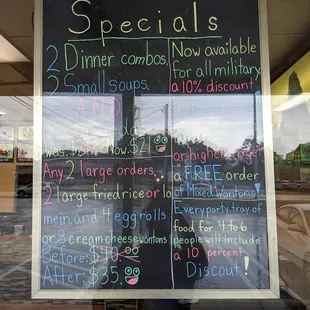 Specials
2 Dinner combos,
2 Small soups,
AND
Now $21
Any 2 large orders,
2 large fried rice or lo
mein, and 4 eggrolls
or 8 cream cheese wontons
Before: $40.00
After: $35
Now available
for all military
a 10% discount
or higher, get
a FREE order
of Mixed wontons!
Every party tray of
food for 4 to 6
people will include
a 10 percent
Discout!